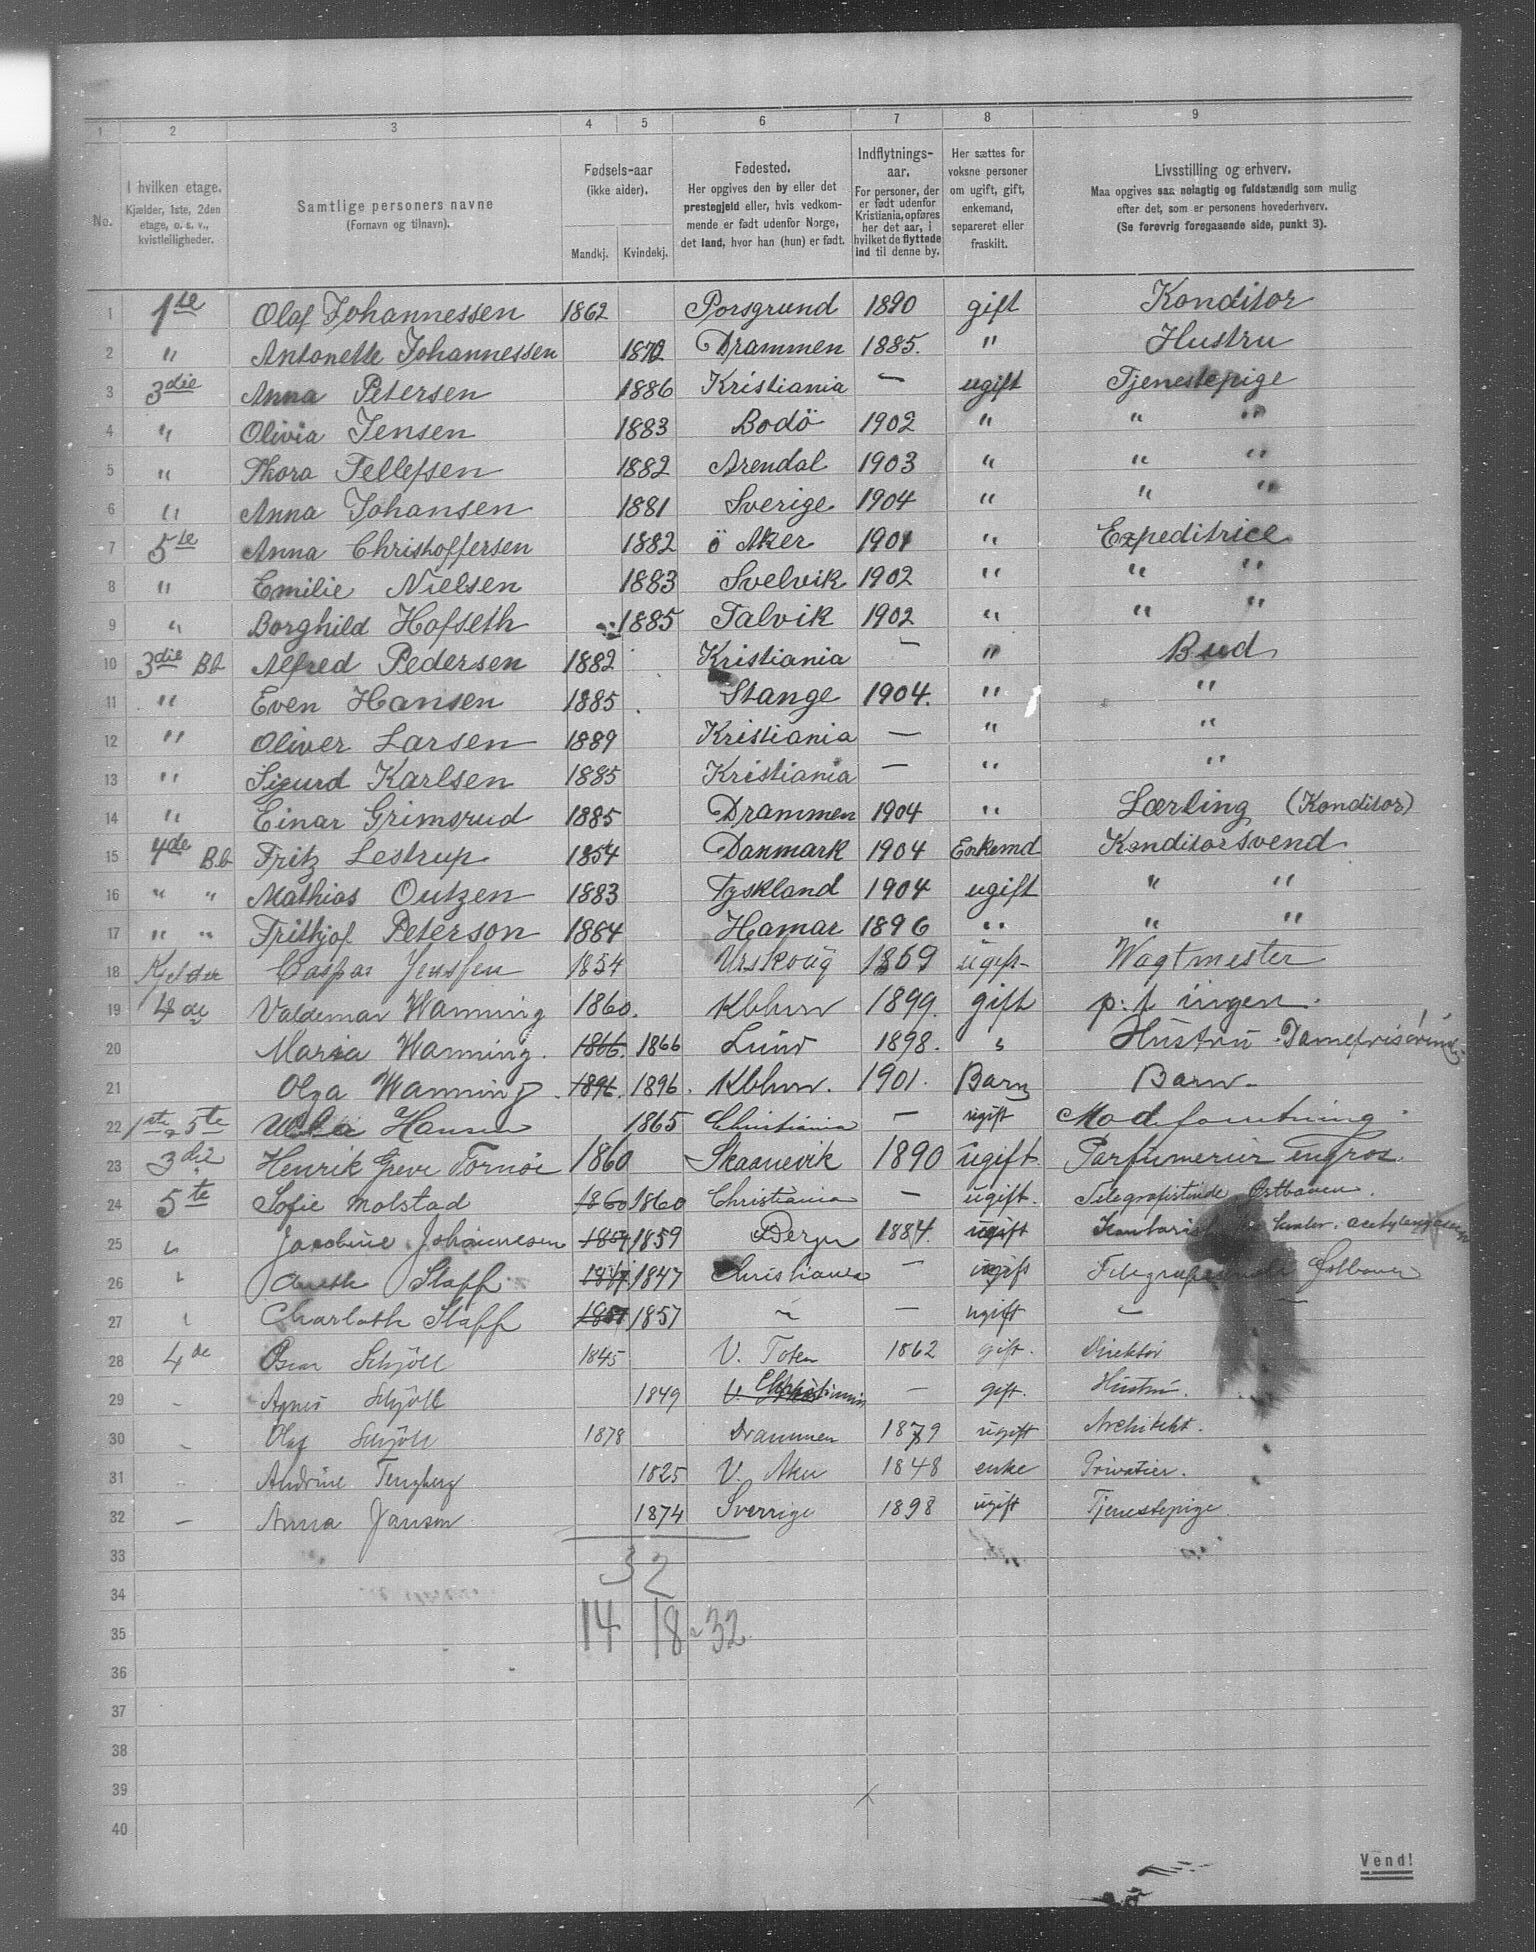 1 2 3 4 5 6 7 8 9
No. I hvilken etage. Kjælder, 1ste, 2den etage, o. s. v., kvistleiligheder. Samtlige personers navne (Fornavn og tilnavn). Fødsels-aar (ikke alder). Mandkj. Kvindekj. Fødested. Her opgives den by eller det prestegjeld eller, hvis vedkommende er født udenfor Norge, det land, hvor han (hun) er født. Indflytnings-aar. For personer, der er født udenfor Kristiania, opføres her det aar, i hvilket de flyttede ind til denne by. Her sættes for voksne personer om ugift, gift, enkemand, separeret eller fraskilt. Livsstilling og erhverv. Maa opgives saa nøiagtig og fuldstændig som mulig efter det, som er personens hovederhverv. (Se forøvrig foregaaende side, punkt 3).
1 1ste Olaf Johannessen 1862 Porsgrund 1890 gift Konditor
2 " Antonette Johannessen 1872 Drammen 1885. " Hustru
3 3die Anna Petersen 1886 Kristiania — ugift Tjenestepige
4 " Olivia Jensen 1883 Bodö 1902 " " "
5 " Thora Tellefsen 1882 Arendal 1903 " " "
6 " Anna Johansen 1881 Sverige 1904 " " "
7 5te Anna Christoffersen 1882 ö Aker 1901 " Expeditrice
8 " Emilie Nielsen 1883 Svelvik 1902 " " "
9 " Borghild Hofseth 1885 Talvik 1902 " " "
10 3die Bb Alfred Pedersen 1882 Kristiania — " Bud
11 " Even Hansen 1885 Stange 1904. " "
12 " Oliver Larsen 1889 Kristiania — " "
13 " Sigurd Karlsen 1885 Kristiania — " "
14 " Einar Grimsrud 1885 Drammen 1904 " Lærling (Konditor)
15 4de Bb Fritz Lestrup 1854 Danmark 1904 Enkemd Konditorsvend
16 " " Mathias Outzen 1883 Tyskland 1904 ugift " "
17 " " Frithjof Peterson 1884 Hamar 1896 " " "
18 Kjelder Caspar Jenssen 1854 Urskoug 1869 ugift Vagtmester
19 4de Valdemar Wanning 1860. Kbhvn 1899. gift p. t. ingen.
20 Maria Wanning. 1866. 1866 Lund 1898. " Hustru Damefrisörinde
21 Olga Wanning 1896. 1896. Kbhvn. 1901. Barn Barn
22 1ste 5te Hansen 1865 Christiania — ugift Modeforretning.
23 3die Henrik Greve Tornøe 1860 Skaanevik 1890 ugift Parfumerier engros.
24 5te Sofie Molstad 1860 1860 Christiania — ugift. Telegrafistinde Østbanen.
25 " Jacobine Johannesen 1859 Bergen 1884. ugift Kontorist
26 " Staff 1847 1847 Christiania — ugift Østbanen
27 " Charlotte Staff 1857 1857 " — ugift " "
28 4de Oscar Schjöll 1845 V. Toten 1862 gift. Direktör
29 - Agnes Schjöll 1849 Christiania — gift. Hustru.
30 - Olaf Schjöll 1878 Drammen 1879 ugift Architekt.
31 Andrine Tengberg 1825 V. Aker 1848 enke Privatier.
32 — Anna Janson 1874 Sverrige 1898 ugift Tjenestepige
33 32
34
35 14 18 = 32
36
37
38
39
40
Vend!